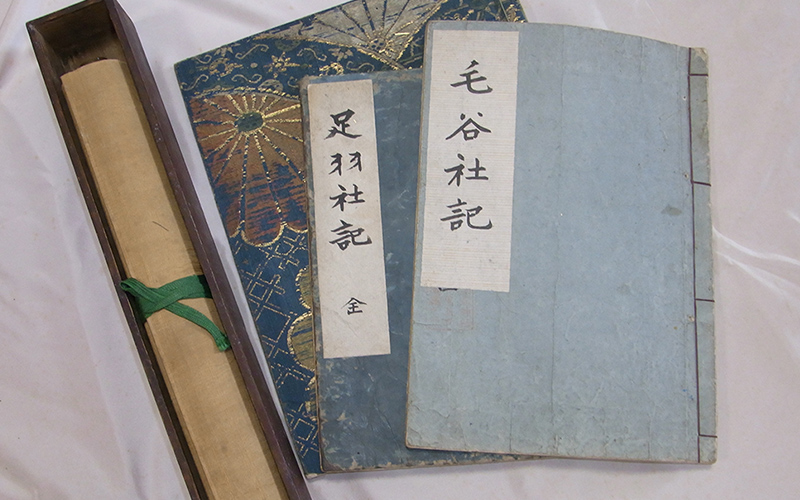 毛谷社記
足羽社記
全